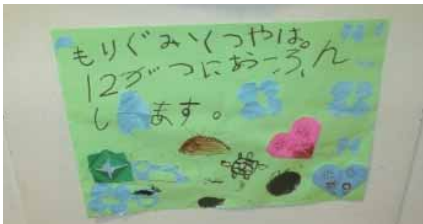 もりぐみくつやは。
12がつにおーぷん
します。